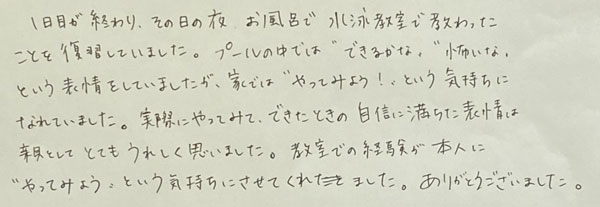 1日目が終わり、その日の夜、お風呂で水泳教室で教わった
ことを復習していました。プールの中では"できるかな、"怖いな、
という表情をしていましたが、家では"やってみよう!"という気持ちに
なれていました。実際にやってみて、できたときの自信に満ちた表情は
親としてとてもうれしく思いました。教室での経験が本人に
"やってみよう"という気持ちにさせてくれました。ありがとうございました。